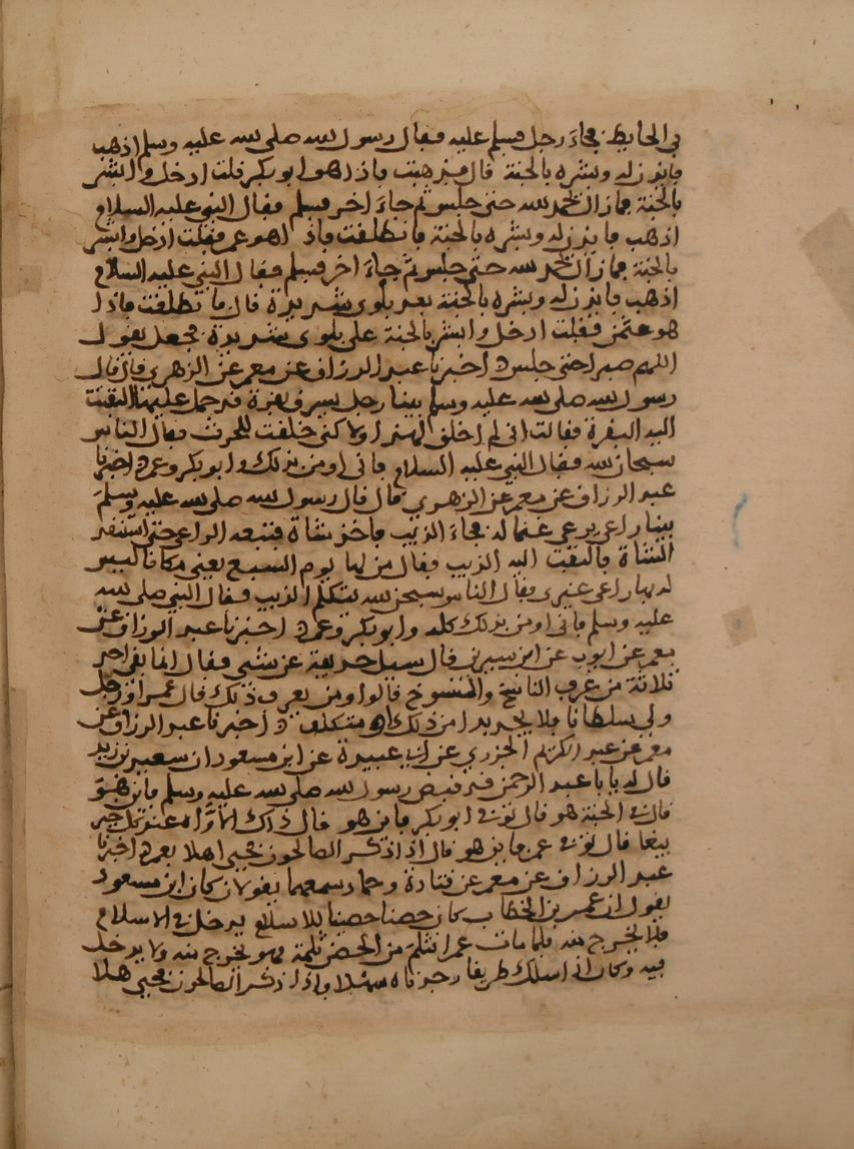 في الحايط فجاء رجل فسلم عليه فقال رسول الله صلى الله عليه وسلم اذهب
فايذن له وبشره بالجنة قال فذهبت فاذا هو ابو بكر قلت ادخل وابشر
بالجنة فما زال يحمد الله حتى جلس ثم جاء اخر فسلم فقال النبي عليه السلام
اذهب فايذن له وبشره بالجنة فانطلقت فاذا هو عمر فقلت ادخل وابشر
بالجنة فما زال يحمد الله حتى جلس ثم جاء اخر فسلم فقال النبي عليه السلام
اذهب فايذن له وبشره بالجنة بعد بلوى شديدة قال فانطلقت فاذا
هو عثمن فقلت ادخل وابشر بالجنة على بلوى شديدة فجعل يقول
اللهم صبرا حتى جلس اخبرنا عبد الرزاق عن معمر عن الزهري قال قال
رسول الله صلى الله عليه وسلم بينا رجل يسوق بقرة قد حمل عليها التفتت
اليه البقرة فقالت اني لم اخلق لهذا ولاكني خلقت للحرث فقال الناس
سبحان الله فقال النبي عليه السلام فاني اومن بذلك وابو بكر وعمر اخبرنا
عبد الرزاق عن معمر عن الزهري قال قال رسول الله صلى الله عليه وسلم
بينا راعي يرعى غنما له فجاء الذيب فاخذ شاة فتبعه الراعي حتى استنقذ
الشاة فالتفت اليه الذيب فقال من لها يوم السبع يعني مكانا ليس
لها راعي غيري فقال الناس سبحن الله يتكلم الذيب فقال النبي صلى الله
عليه وسلم فاني اومن بذلك كله وابو بكر وعمر اخبرنا عبد الرزاق عن
معمر عن ايوب عن ابن سيرين قال سيل حذيفة عن شي فقال انما يفتي احد
ثلاثة من عرف الناسخ والمنسوخ قالوا ومن يعرف ذلك قال عمر او رجل
ولي سلطانا فلا يجد بدا من ذلك او متكلف اخبرنا عبد الرزاق عن
معمر عن عبد الكريم الجزري عن ابي عبيدة عن ابن مسعود ان سعيد بن زيد
قال له يا ابا عبد الرحمن قد قبض رسول الله صلى الله عليه وسلم فاين هو
قال في الجنة هو قال توفي ابو بكر فاين هو قال ذاك الاواه عند كل خير
يبغا قال توفي عمر فاين هو قال اذا ذكر الصالحون فحيى اهلا بعمر اخبرنا
عبد الرزاق عن معمر عن قتادة وحماد سمعهما يقولان كان ابن مسعود
يقول ان عمر بن الخطاب كان حصنا حصينا للاسلام يدخل في الاسلام
فلا يخرج منه فلما مات عمر انثلم من الحصن ثلمة فهو يخرج منه ولا يدخل
فيه وكان اذا سلك طريقا وجدناه سهلا واذا ذكر الصالحون فحيى هلا